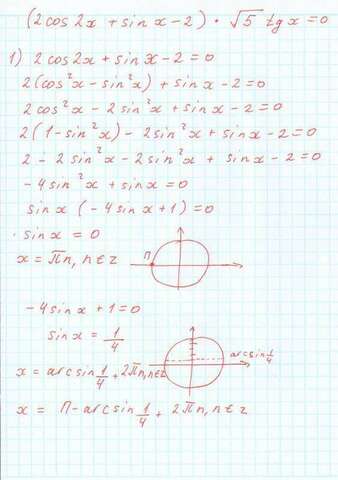 (2cos2x + sinx - 2) · √5 tgx = 0
1) 2cos2x + sinx - 2 = 0
2(cos²x - sin²x) + sinx - 2 = 0
2cos²x - 2sin²x + sinx - 2 = 0
2(1 - sin²x) - 2sin²x + sinx - 2 = 0
2 - 2sin²x - 2sin²x + sinx - 2 = 0
-4sin²x + sinx = 0
sinx (-4sinx + 1) = 0
· sinx = 0
x = πn, n∈z
π
-4sinx + 1 = 0
sinx = 1/4
arcsin 1/4
x = arcsin 1/4 + 2πn, n∈z
x = π - arcsin 1/4 + 2πn, n∈z